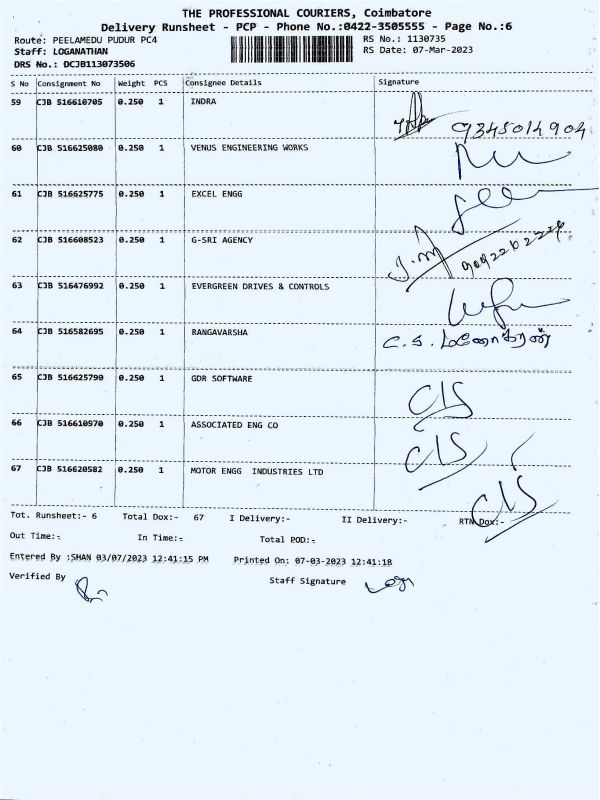 THE PROFESSIONAL COURIERS, Coimbatore
Delivery Runsheet - PCP - Phone No.:0422-3505555 - Page No.:6
Route: PEELAMEDU PUDUR PC4 RS No.: 1130735
Staff: LOGANATHAN RS Date: 07-Mar-2023
DRS No.: DCJB113073506
S No Consignment No Weight PCS Consignee Details Signature
59 CJB 516610705 0.250 1 INDRA
9345014904
60 CJB 516625080 0.250 1 VENUS ENGINEERING WORKS
61 CJB 516625775 0.250 1 EXCEL ENGG
62 CJB 516608523 0.250 1 G-SRI AGENCY
9092262224
63 CJB 516476992 0.250 1 EVERGREEN DRIVES & CONTROLS
64 CJB 516582695 0.250 1 RANGAVARSHA
C. S. மனோகரன்
65 CJB 516625790 0.250 1 GDR SOFTWARE
C/S
66 CJB 516610970 0.250 1 ASSOCIATED ENG CO
C/S
67 CJB 516620582 0.250 1 MOTOR ENGG INDUSTRIES LTD
C/S
Tot. Runsheet:- 6 Total Dox:- 67 I Delivery:- II Delivery:- RTN Dox:-
Out Time:- In Time:- Total POD:-
Entered By :SHAN 03/07/2023 12:41:15 PM Printed On: 07-03-2023 12:41:18
Verified By Staff Signature